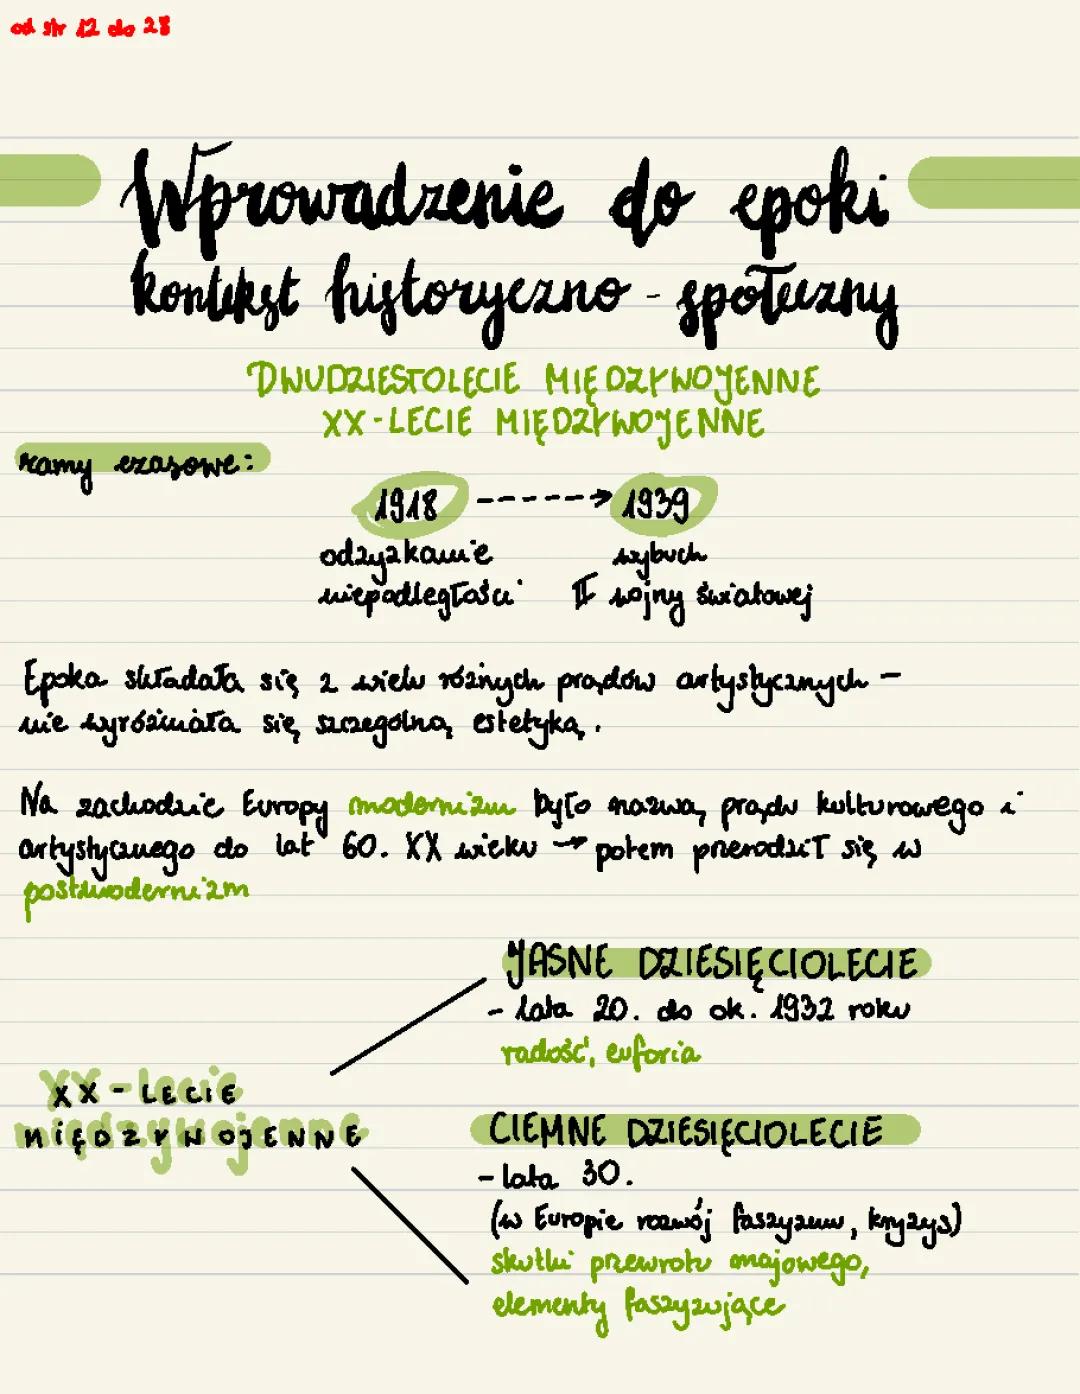 od str 12 do 28
Wprowadzenie do epoki
kontekst historyczno - społeczny
DWUDZIESTOLECIE MIĘDZYWOJENNE
XX - LECIE MIĘDZYWOJENNE
ramy czasowe:
1918 ------> 1939
odzyskanie wybuch
niepodległości II wojny światowej
Epoka składała się z wielu różnych prądów artystycznych -
nie wyróżniała się szczególną estetyką.
Na zachodzie Europy modernizm było nazwą prądu kulturowego i
artystycznego do lat 60. XX wieku → potem przerodził się w
postmodernizm
JASNE DZIESIĘCIOLECIE
- lata 20. do ok. 1932 roku
radość, euforia
XX - LECIE
MIĘDZYWOJENNE
CIEMNE DZIESIĘCIOLECIE
- lata 30.
(w Europie rozwój faszyzmu, kryzys)
skutki przewrotu majowego,
elementy faszyzujące